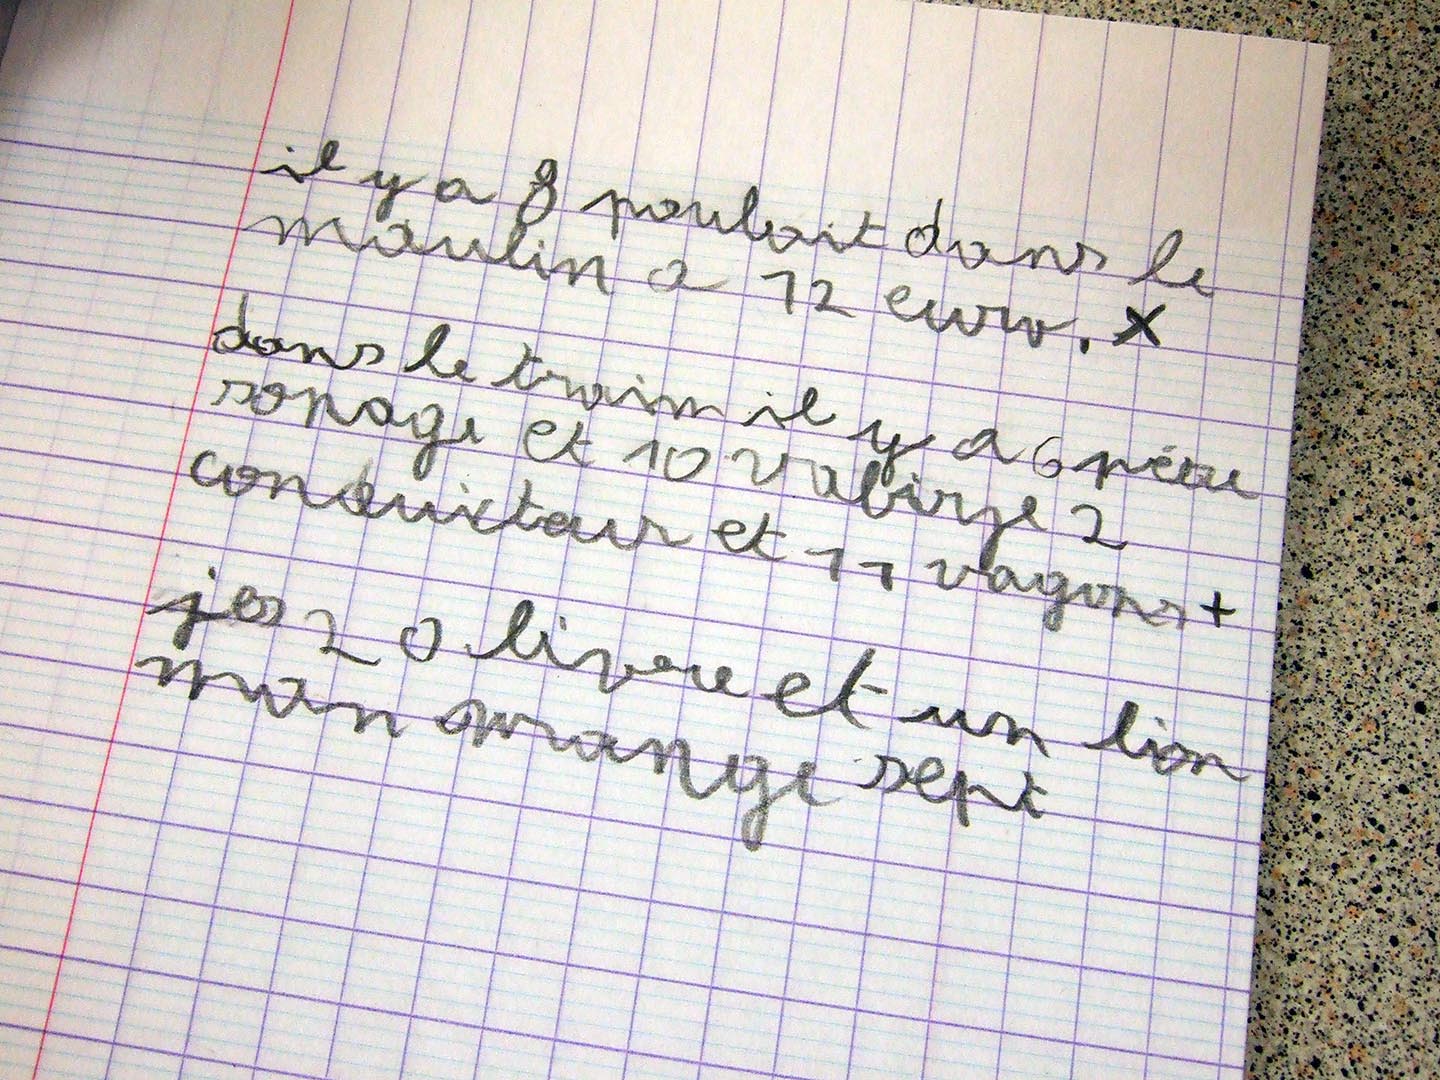 il y a 8 poulait dans le
moulin a 12 euro. x
dans le train il y a 6 père
sonage et 10 valirge 2
conducteur et 11 vagons +
jes 20 livre et un lion
man mange sept